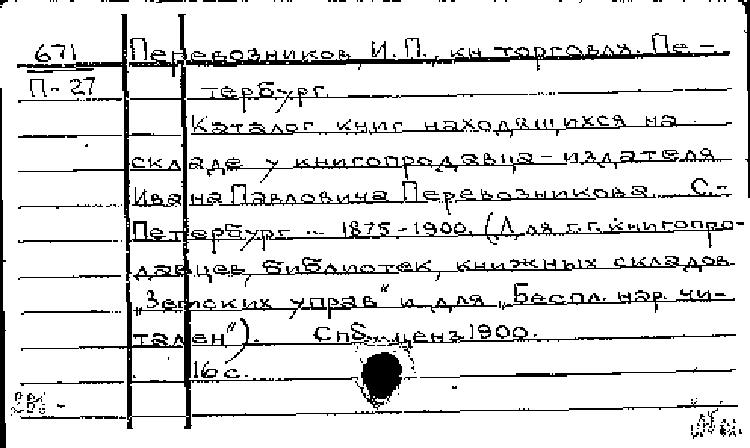 671
П-27
Перевозников, И.П., кн торговля. Пе-
тербург.
Каталог книг находящихся на
складе у книгопродавца-издателя
Ивана Павловича Перевозникова. С.-
Петербург. - 1875-1900. (Для г.г. книгопро-
давцев, библиотек, книжных складов
„Земских управ" и для „Беспл. нар. чи-
тален").    Спб. ценз 1900.
16 с.